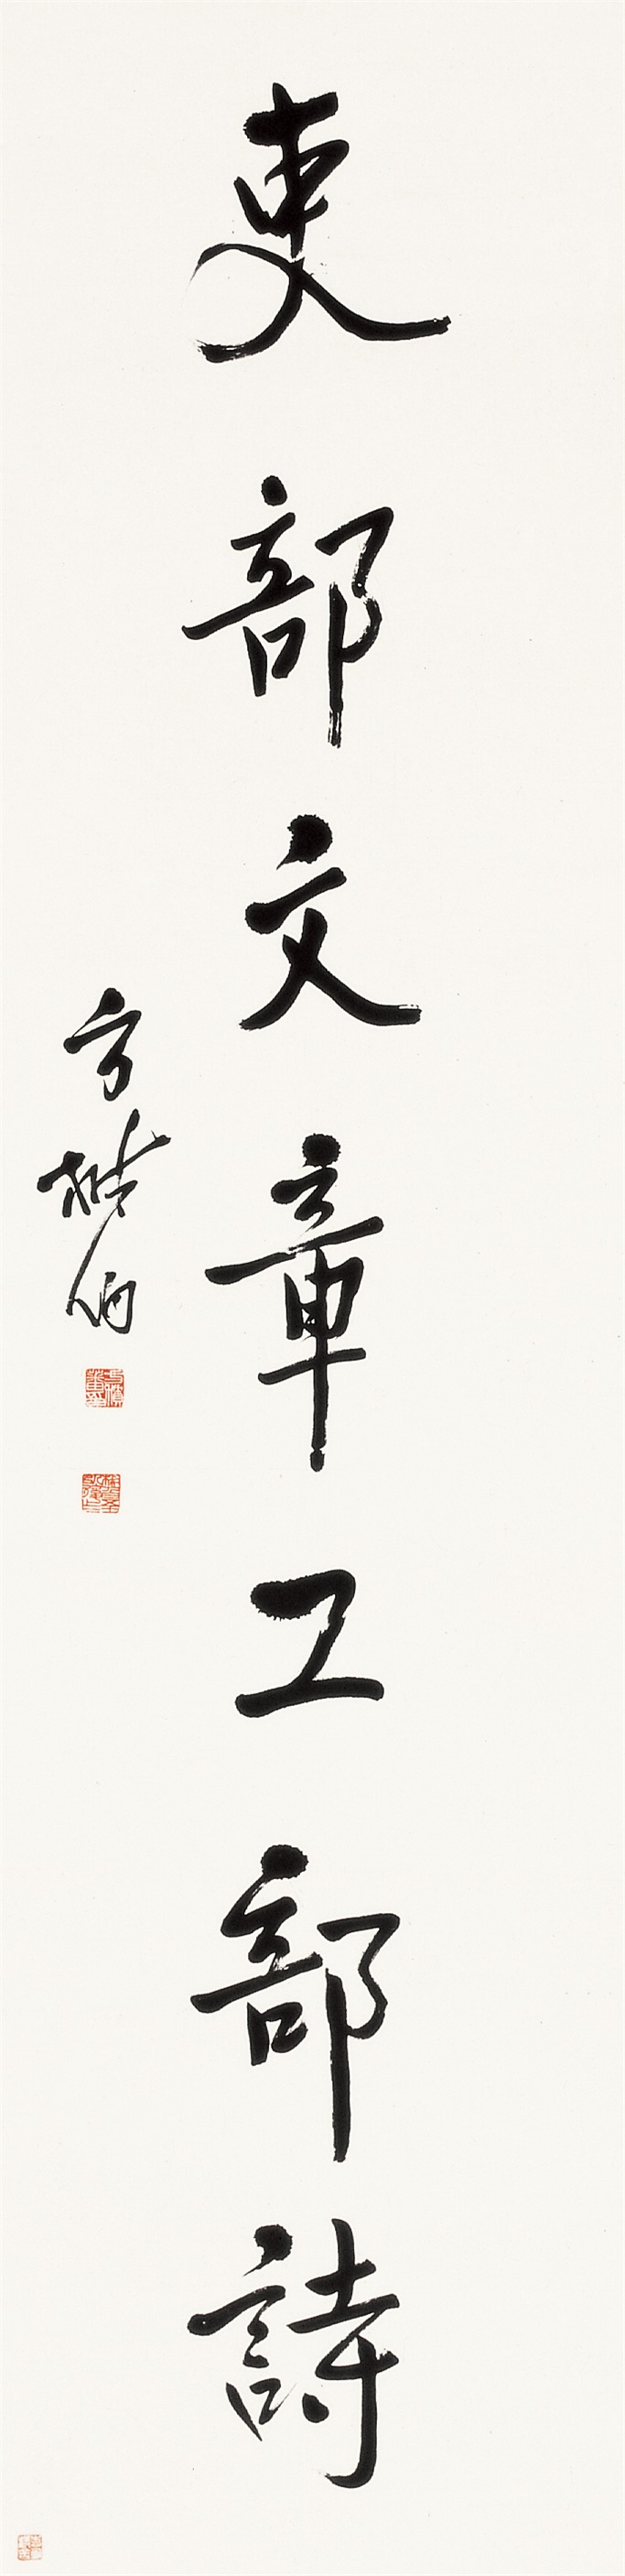 吏部文章工部詩
方楙伯